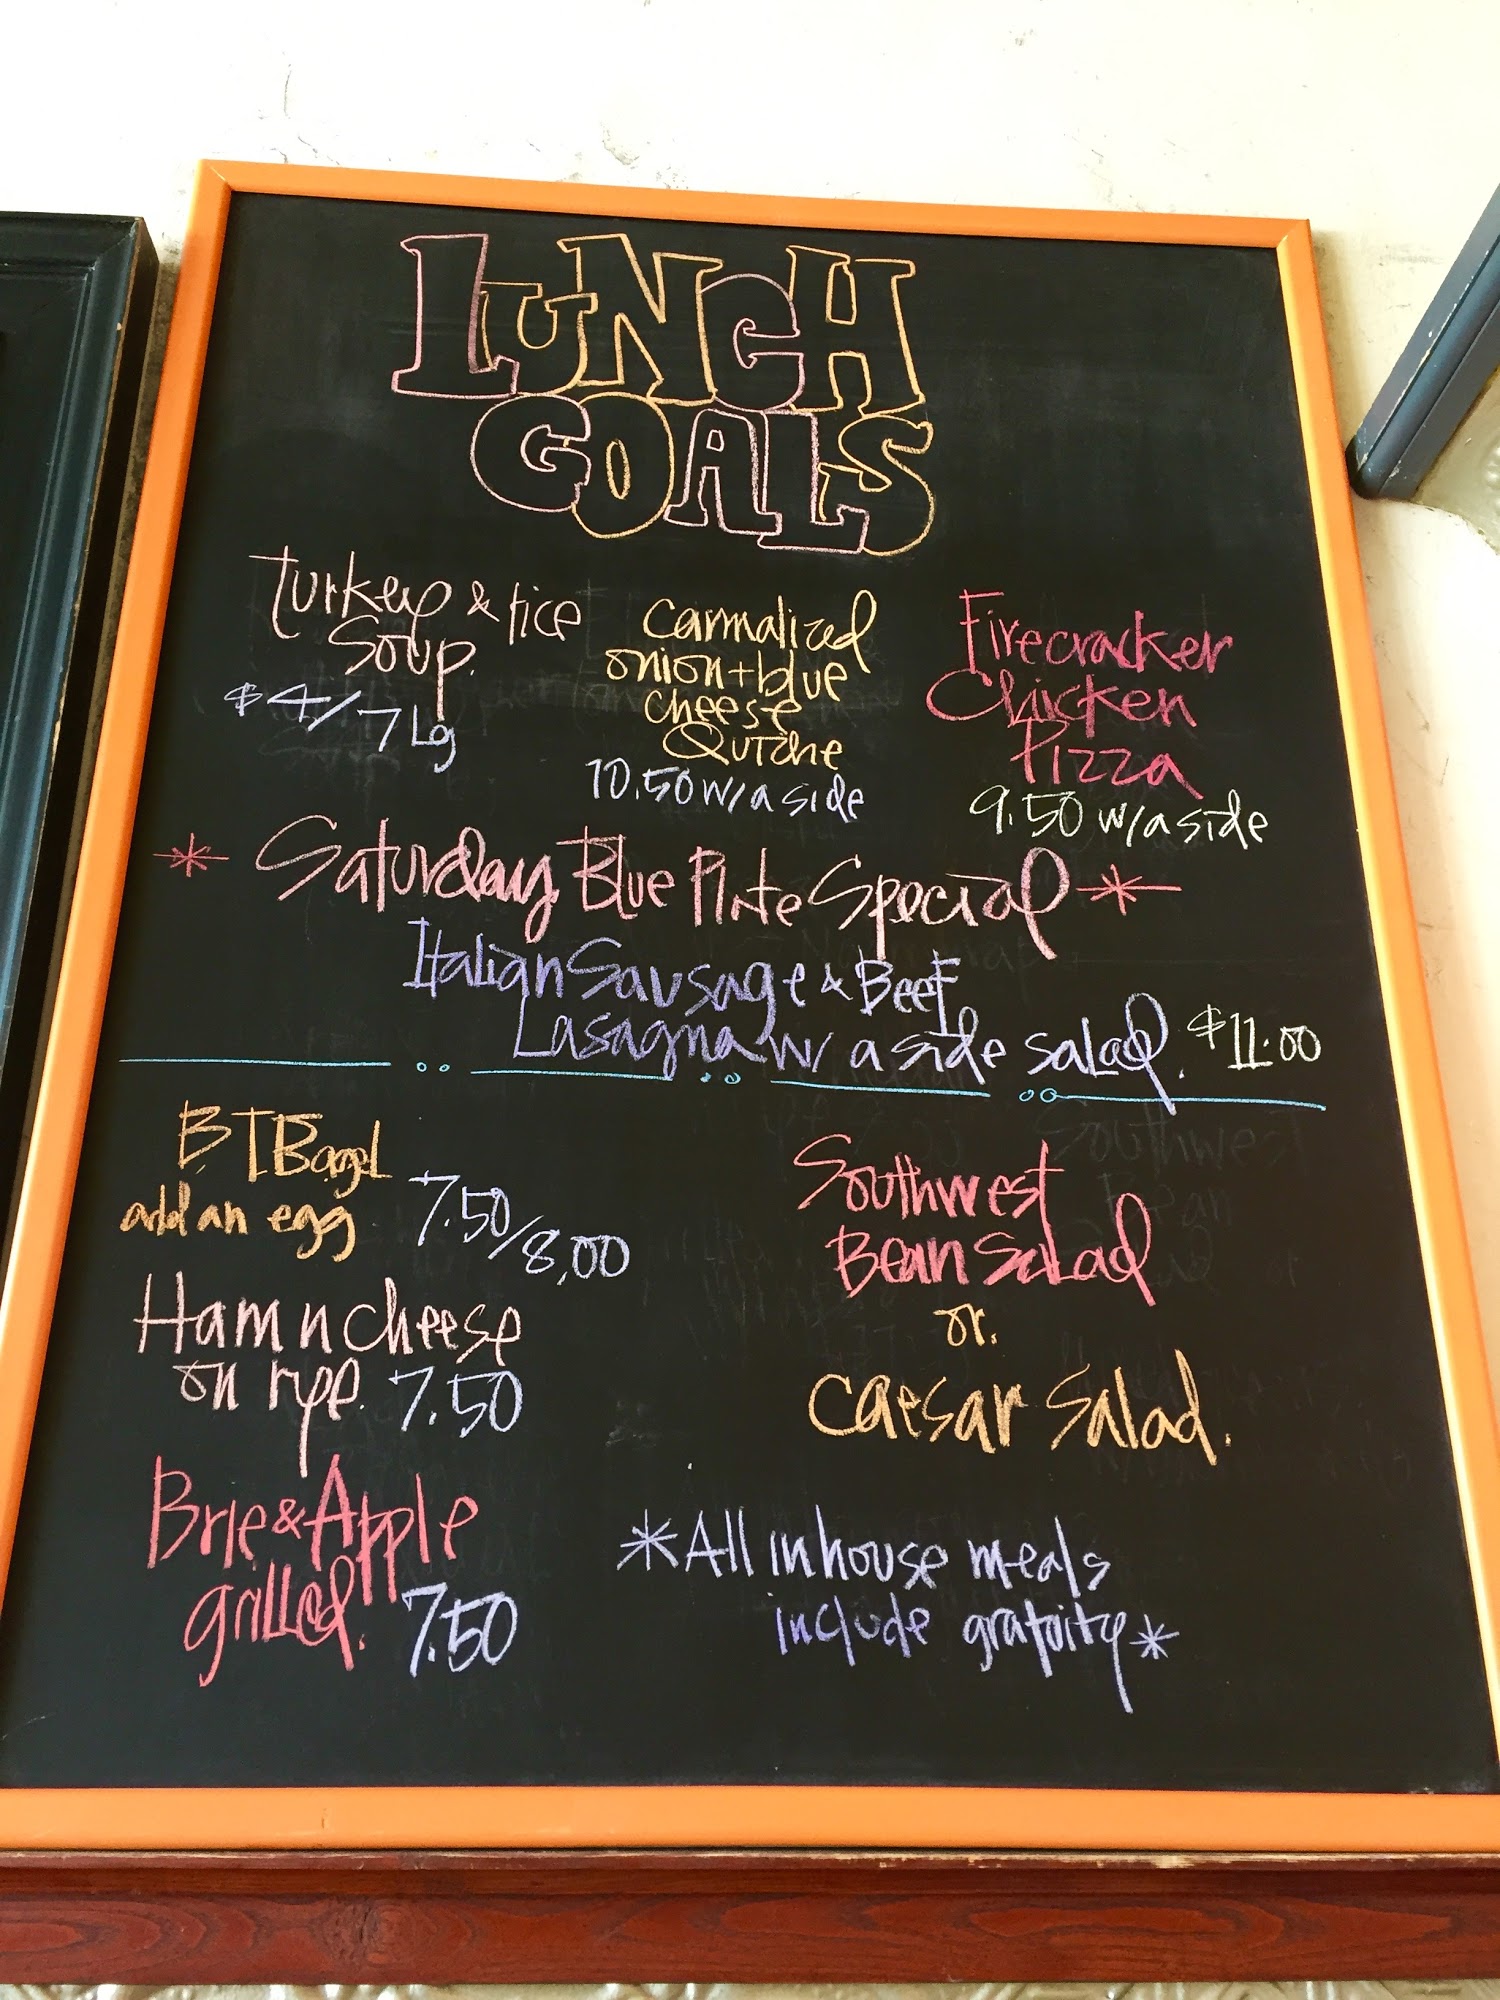 LUNCH
GOALS
Turkey & rice
Soup.
$4/7 Lg
carmalized
onion + blue
cheese
Quiche
10.50 w/a side
Firecracker
Chicken
Pizza
9.50 w/a side
* Saturday Blue Plate Special *
Italian Sausage & Beef
Lasagna w/ a side salad. $11.00
BTBagel
add an egg 7.50/8.00
Ham n cheese
on rye. 7.50
Brie & Apple
grilled. 7.50
Southwest
Bean Salad
or.
Caesar Salad.
*All inhouse meals
include gratuity*